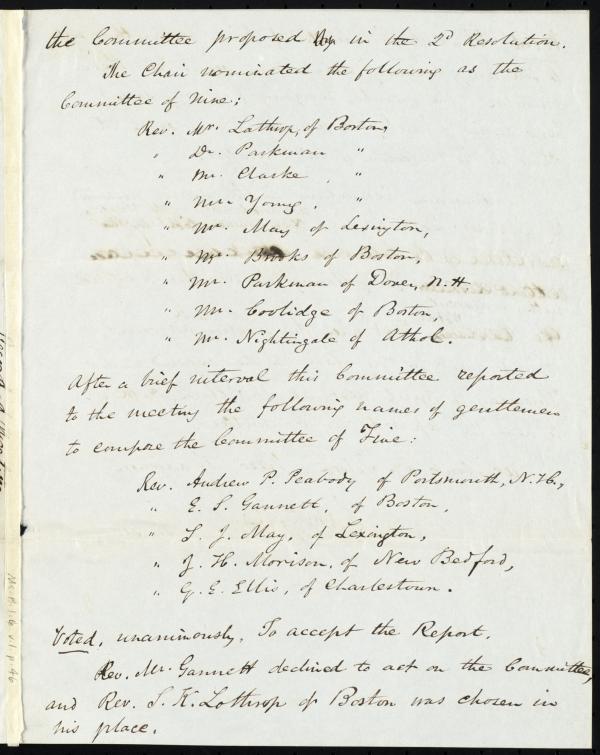 the Committee proposed in the 2d Resolution.
The Chair nominated the following as the
Committee of Nine:
Rev. Mr. Lathrop, of Boston,
" Dr. Parkman "
" Mr. Clarke, "
" Mr. Young, "
" Mr. May of Lexington,
" Mr. Brooks of Boston,
" Mr. Parkman of Dover, N.H
" Mr. Coolidge of Boston,
" Mr. Nightingale of Athol.
After a brief interval this Committee reported
to the meeting the following names of gentlemen
to compose the Committee of Five:
Rev. Andrew P. Peabody of Portsmouth, N.H.,
" E. S. Gannett, of Boston,
" S. J. May, of Lexington,
" J. H. Morison, of New Bedford,
" G. E. Ellis, of Charlestown.
Voted, unanimously, To accept the Report.
Rev. Mr. Gannett declined to act on the Committee,
and Rev. S. K. Lothrop of Boston was chosen in
his place.